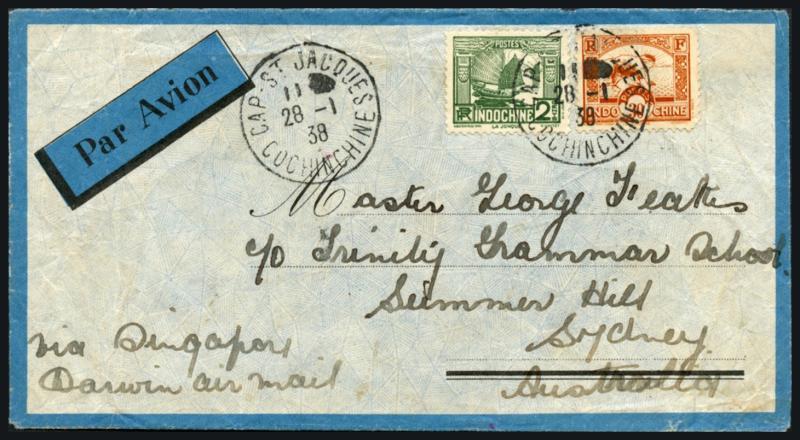 Par Avion
CAP ST JACQUES
11
28 -1
38
COCHINCHINE
POSTES
2
R F
INDOCHINE
LA JONQUE
R F
INDOCHINE
CAP ST JACQUES
11
28 -1
38
COCHINCHINE
Master George Feakes
c/o Trinity Grammar School
Summer Hill
Sydney
Australia
via Singapore
Darwin air mail